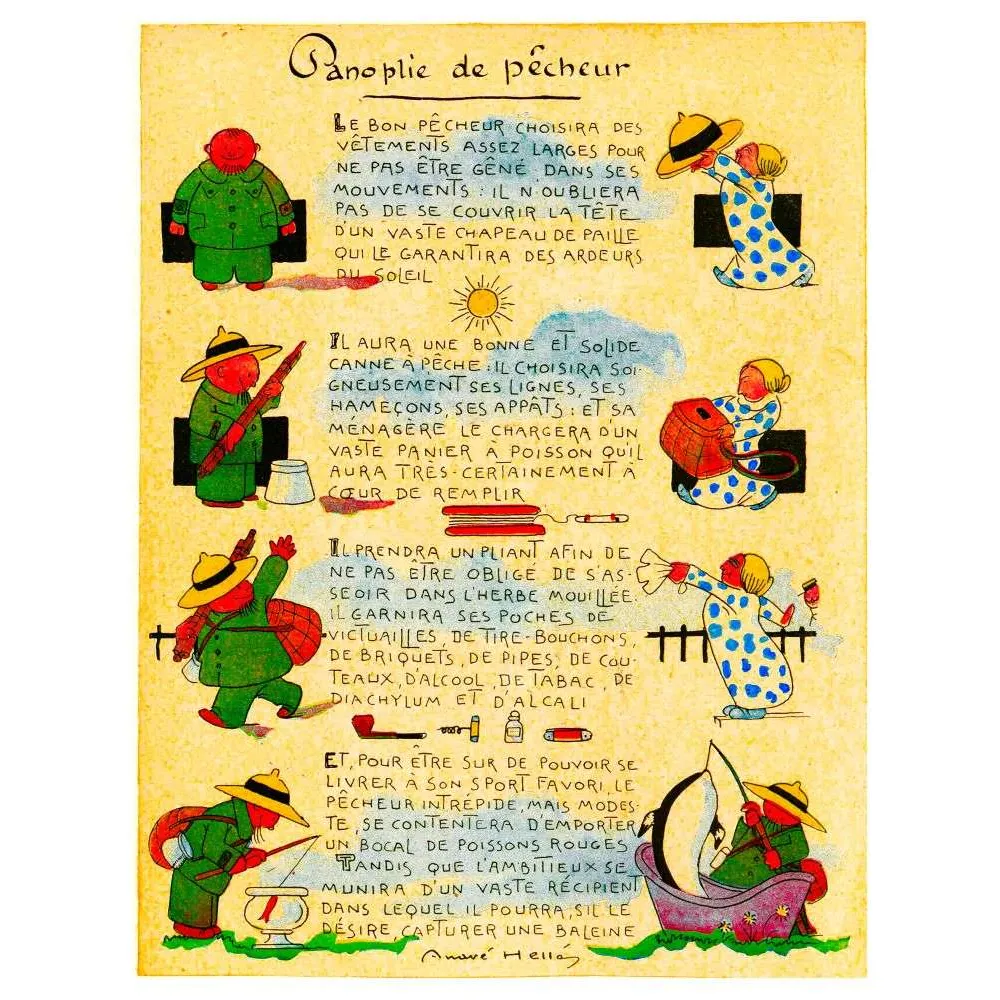 Panoplie de pêcheur
LE BON PÊCHEUR CHOISIRA DES
VÊTEMENTS ASSEZ LARGES POUR
NE PAS ÊTRE GÊNÉ DANS SES
MOUVEMENTS : IL N'OUBLIERA
PAS DE SE COUVRIR LA TÊTE
D'UN VASTE CHAPEAU DE PAILLE
QUI LE GARANTIRA DES ARDEURS
DU SOLEIL
IL AURA UNE BONNE ET SOLIDE
CANNE À PÊCHE : IL CHOISIRA SOI-
GNEUSEMENT SES LIGNES, SES
HAMEÇONS, SES APPÂTS : ET SA
MÉNAGÈRE LE CHARGERA D'UN
VASTE PANIER À POISSON QU'IL
AURA TRÈS-CERTAINEMENT À
CŒUR DE REMPLIR
IL PRENDRA UN PLIANT AFIN DE
NE PAS ÊTRE OBLIGÉ DE S'AS-
SEOIR DANS L'HERBE MOUILLÉE.
IL GARNIRA SES POCHES DE
VICTUAILLES, DE TIRE-BOUCHONS,
DE BRIQUETS, DE PIPES, DE COU-
TEAUX, D'ALCOOL, DE TABAC, DE
DIACHYLUM ET D'ALCALI
ET, POUR ÊTRE SUR DE POUVOIR SE
LIVRER À SON SPORT FAVORI, LE
PÊCHEUR INTRÉPIDE, MAIS MODES-
TE, SE CONTENTERA D'EMPORTER
UN BOCAL DE POISSONS ROUGES
TANDIS QUE L'AMBITIEUX SE
MUNIRA D'UN VASTE RÉCIPIENT
DANS LEQUEL IL POURRA, S'IL LE
DÉSIRE, CAPTURER UNE BALEINE
André Hellé